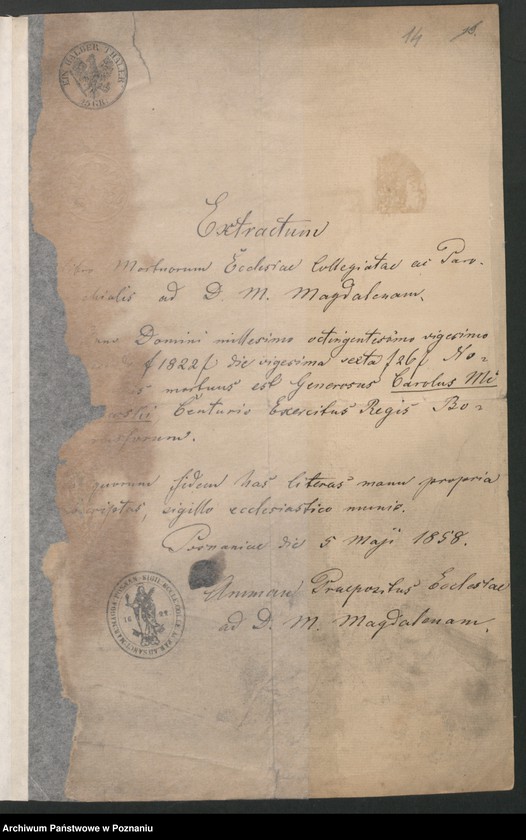 14
EIN HALBER THALER
15 GR.
Extractum
Mortuorum Ecclesiae Collegiatae ac Paro-
chialis ad D. M. Magdalenam.
Domini millesimo octingentesimo vigesimo
[1822] die vigesima sexta [26] No-
mortuus est Generosus Carolus Mi
Centurio Exercitus Regis Bo-
russorum.
quorum fidem has literas manu propria
scriptas, sigillo ecclesiastico munio.
Posnaniae die 5 Maji 1858.
Amman Praepozitus Ecclesiae
ad D. M. Magdalenam.
16 22
Archiwum Państwowe w Poznaniu